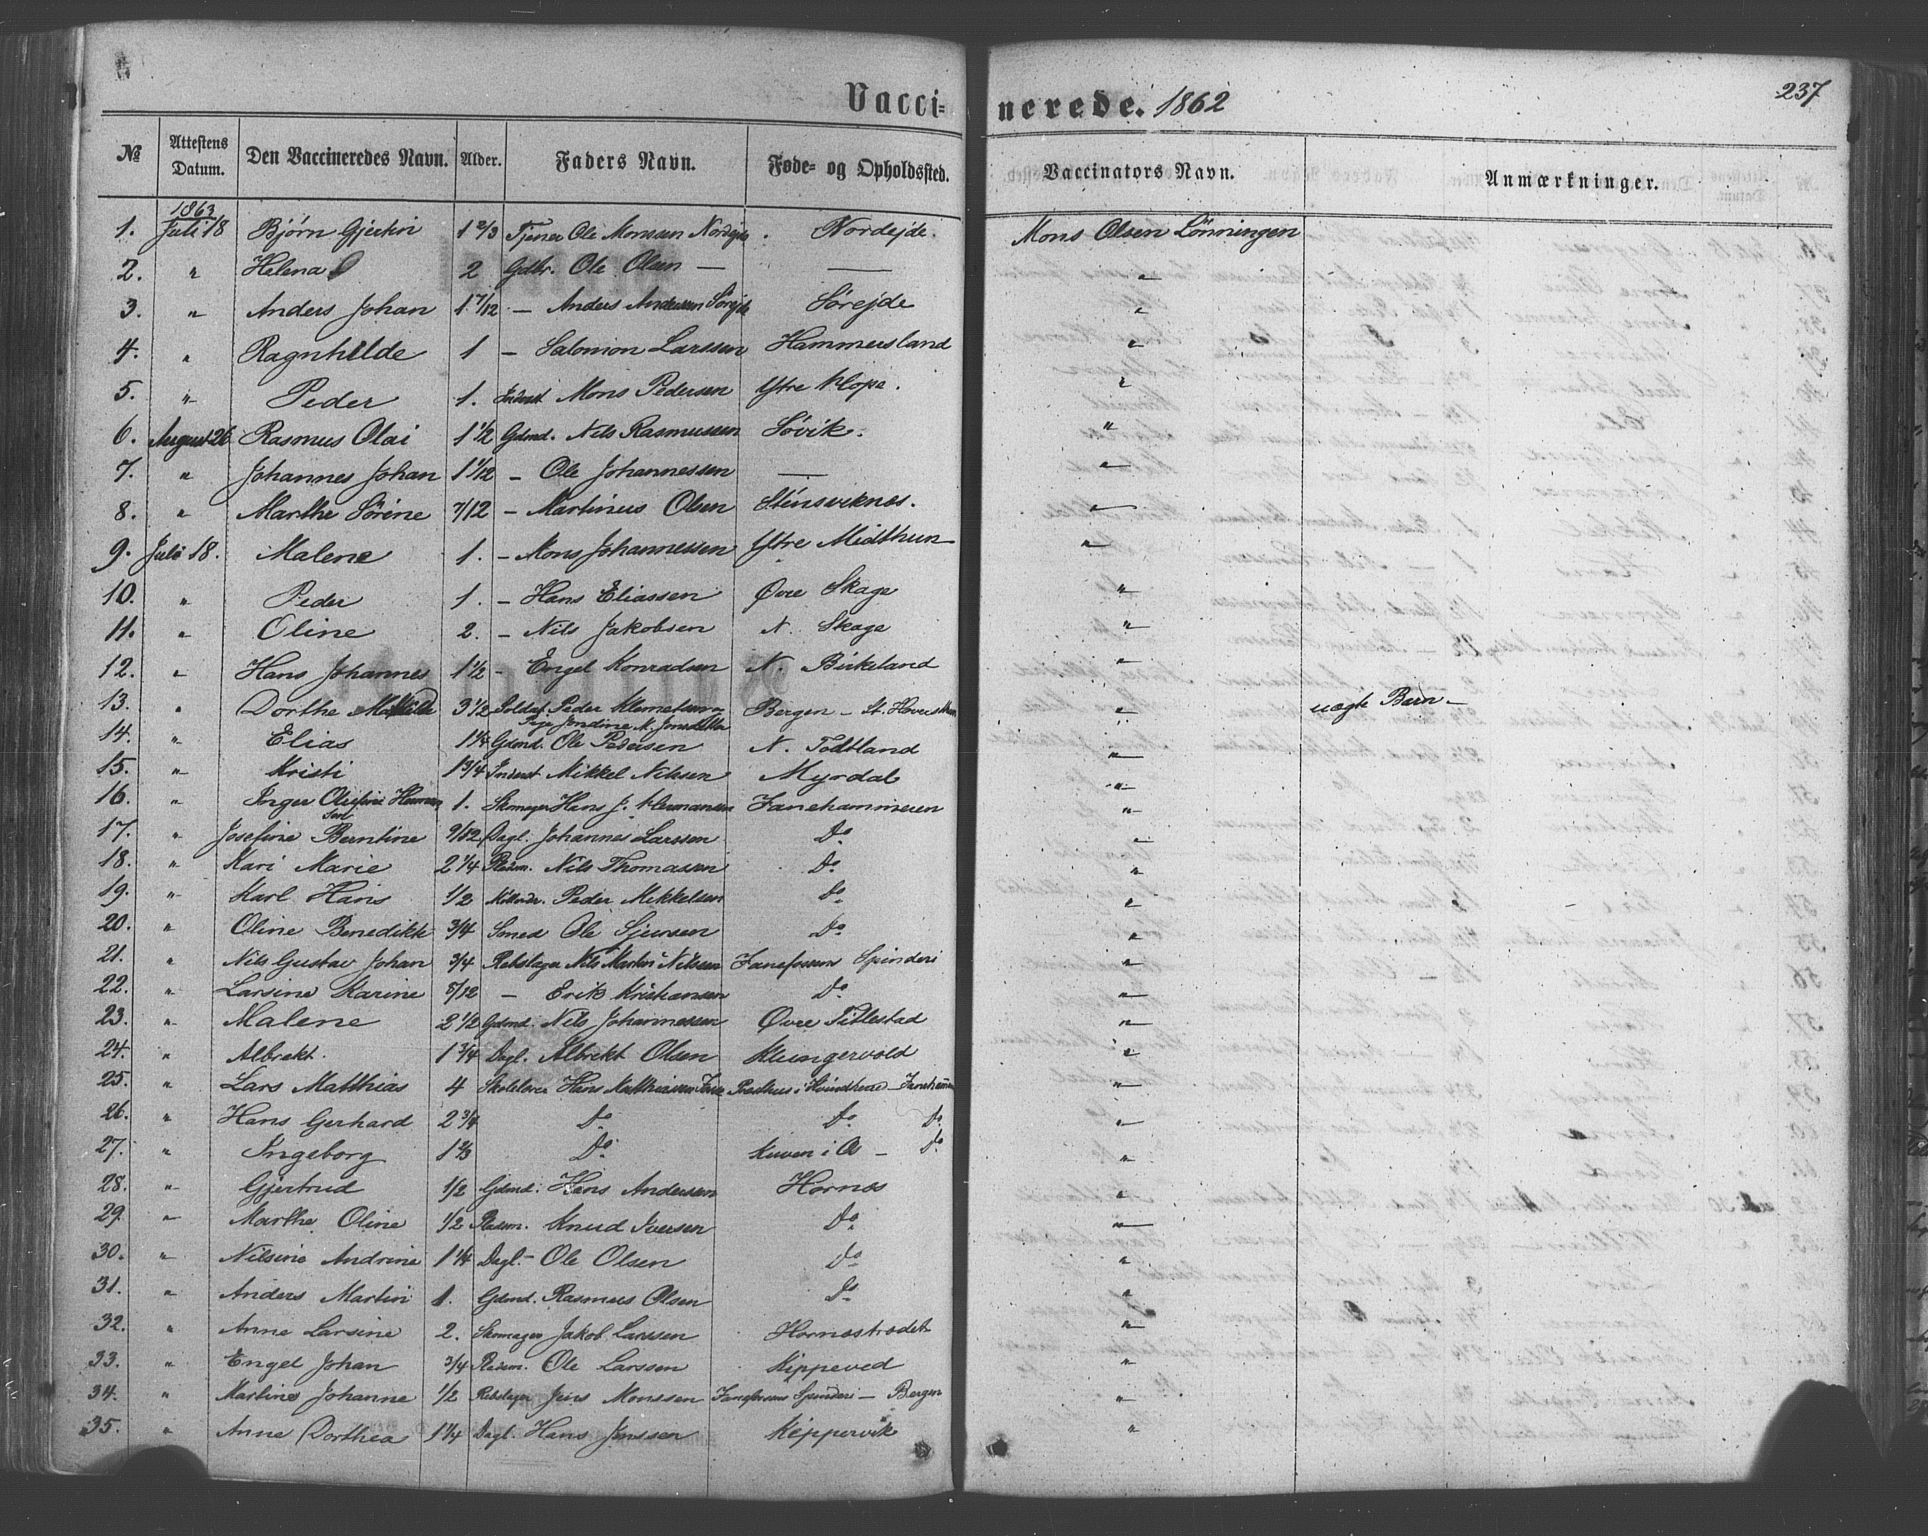 237
Vaccinerede. 1862
No Attestens Datum. Den Vaccineredes Navn. Alder. Faders Navn. Føde- og Opholdssted. Vaccinators Navn. Anmærkninger.
1863
1. Juli 18 Bjørn Gjertin 1 2/3 Tjener Ole Monssen Nordejde Nordejde. Mons Olsen Lönningen
2. " Helena 2 Gdbr. Ole Olsen — — "
3. " Anders Johan 1 7/12 — Anders Anderssen Sörejde Sörejde "
4. " Ragnhilde 1 — Salomon Larssen Hammersland "
5. " Peder 1. Inderst Mons Pedersen Ytre Klope. "
6. August 26 Rasmus Olai 1 1/2 Gdmd. Nils Rasmussen Sövik. "
7. " Johannes Johan 1 1/12 — Ole Johannessen — "
8. " Marthe Sörine 7/12 — Martinus Olsen Stensvknes. "
9. Juli 18. Malene 1. — Mons Johannessen Ytre Midthun "
10. " Peder 1. — Hans Eliassen Øvre Skage "
11. " Oline 2. — Nils Jakobsen N. Skage "
12. " Hans Johannes 1 1/2 — Engel Konradsen N. Birkeland "
13. " Dorthe Mathilde 3 1/2 Soldat Peder Klemetsen Bergen — St. " uægte Barn —
Pige Jondine M. Jonsdatter
14. " Elias 1 1/4 Gdmd. Ole Pedersen N. Todtland "
15. " Kristi 1 3/4 Inderst Mikkel Nilssen Myrdal "
16. " Inger Olefine Herman 1. Skomager Hans J. Hermansen Fanehammeren "
17. " Josefine Berntine 9/12 Dagl. Johannes Larssen Do "
18. " Kari Marie 2 1/4 Pladsm. Nils Thomassen Do "
19. " Karl Hans 1/2 Peder Mikkelsen Do "
20. " Oline Benedikte 3/4 Smed Ole Sjursen Do "
21. " Nils Gustav Johan 3/4 Rebslager Nils Martin Nilsen Fanefossens Spinderi "
22. " Larsine Karine 8/12 — Erik Kristiansen Do "
23. " Malene 2 1/2 Gdmd. Nils Johannessen Øvre Titlestad "
24. " Albrekt 1 3/4 Dagl. Albrekt Olsen Klungervold "
25. " Lars Matthias 4 Skolelærer Hans Matthiassen "
26. " Hans Gerhard 2 3/4 Do Do Do "
27. " Ingeborg 1 2/3 Do Kuven i Os — Do "
28. " Gjertrud 1/2 Gdmd. Hans Andersen Hornes "
29. " Marthe Oline 1/2 Pladsm. Knud Iversen Do "
30. " Nilsine Andrine 1 1/4 Dagl. — Ole Olsen Do "
31. " Anders Martin 1. Gdmd. Rasmus Olsen Do "
32. " Anne Larsine 2. Skomager Jakob Larssen Hornestrædet "
33. " Engel Johan 3/4 Pladsm. Ole Larssen Kippeved "
34. " Martine Johanne 1/2 Rebslager Jens Monssen Fanefossens Spinderi — Bergen "
35. " Anne Dorthea 1 1/4 Dagl. Hans Jenssen Kippervik "